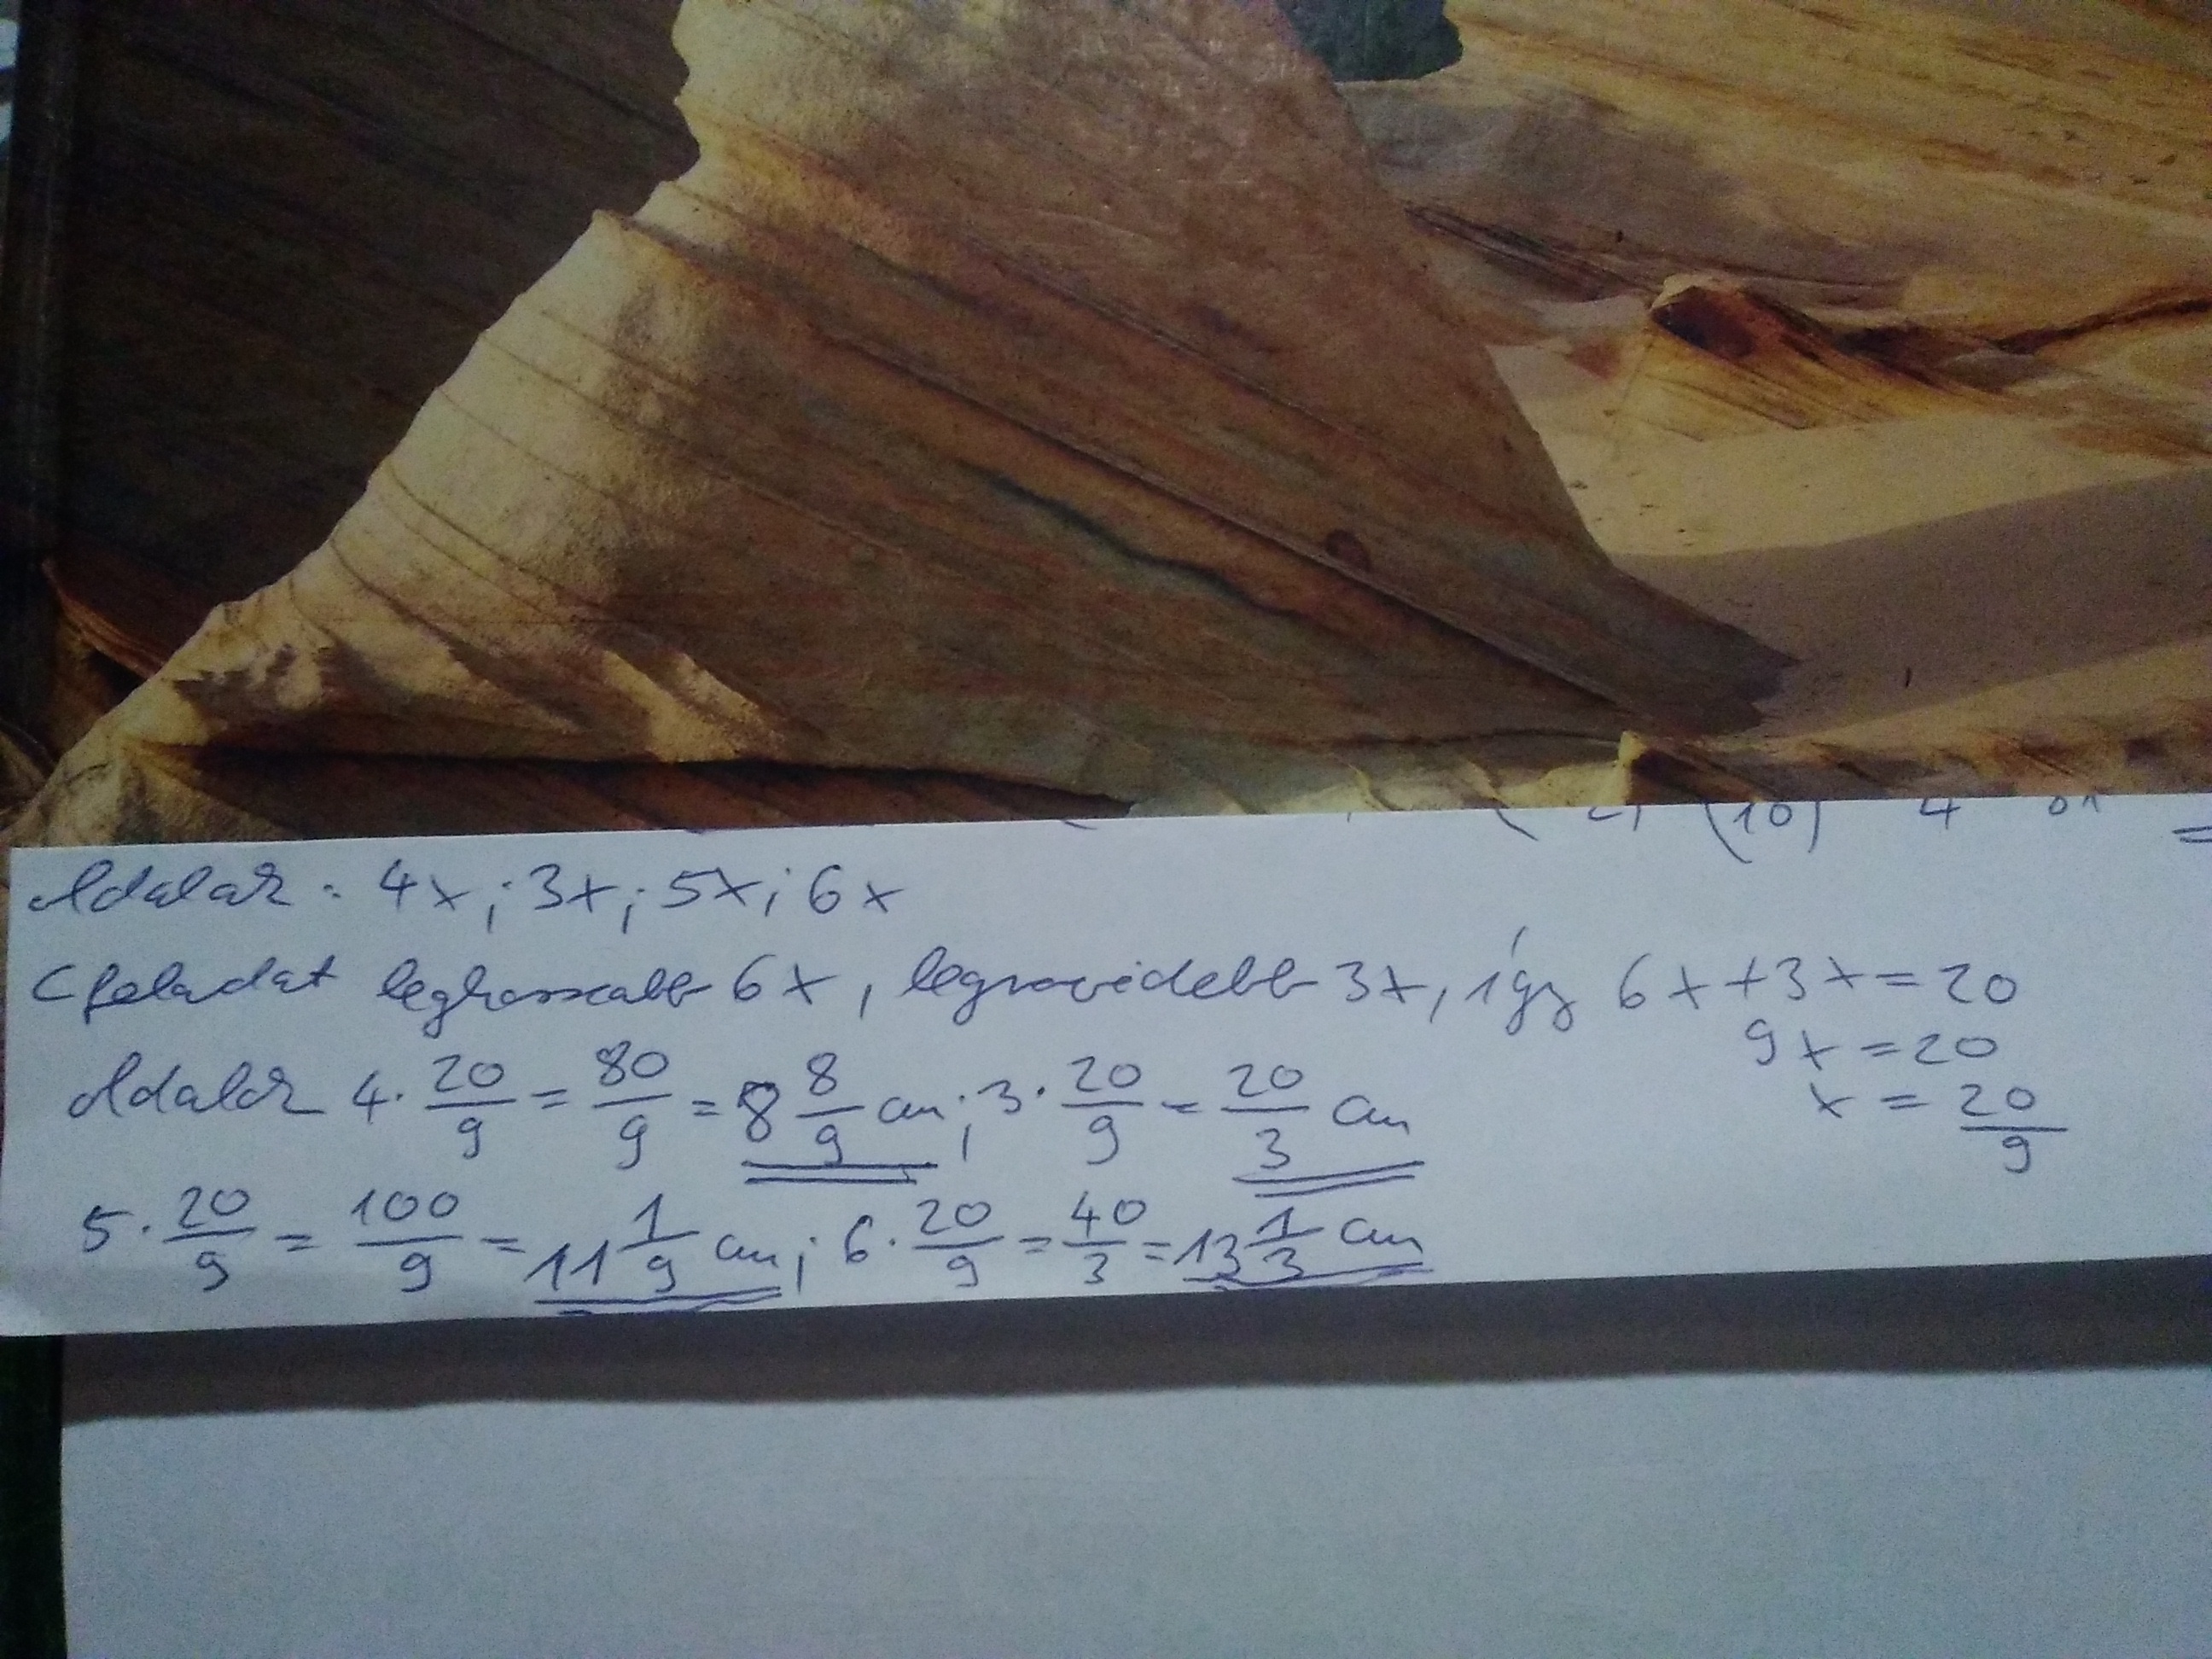 (10) 4
Adalak: 4x; 3x; 5x; 6x
C feladat leghosszabb 6x, legrövidebb 3x, így 6x+3x=20
9x=20
x=20/9
Adalak 4·20/9=80/9=8 8/9 cm; 3·20/9=20/3 cm
5·20/9=100/9=11 1/9 cm; 6·20/9=40/3=13 1/3 cm